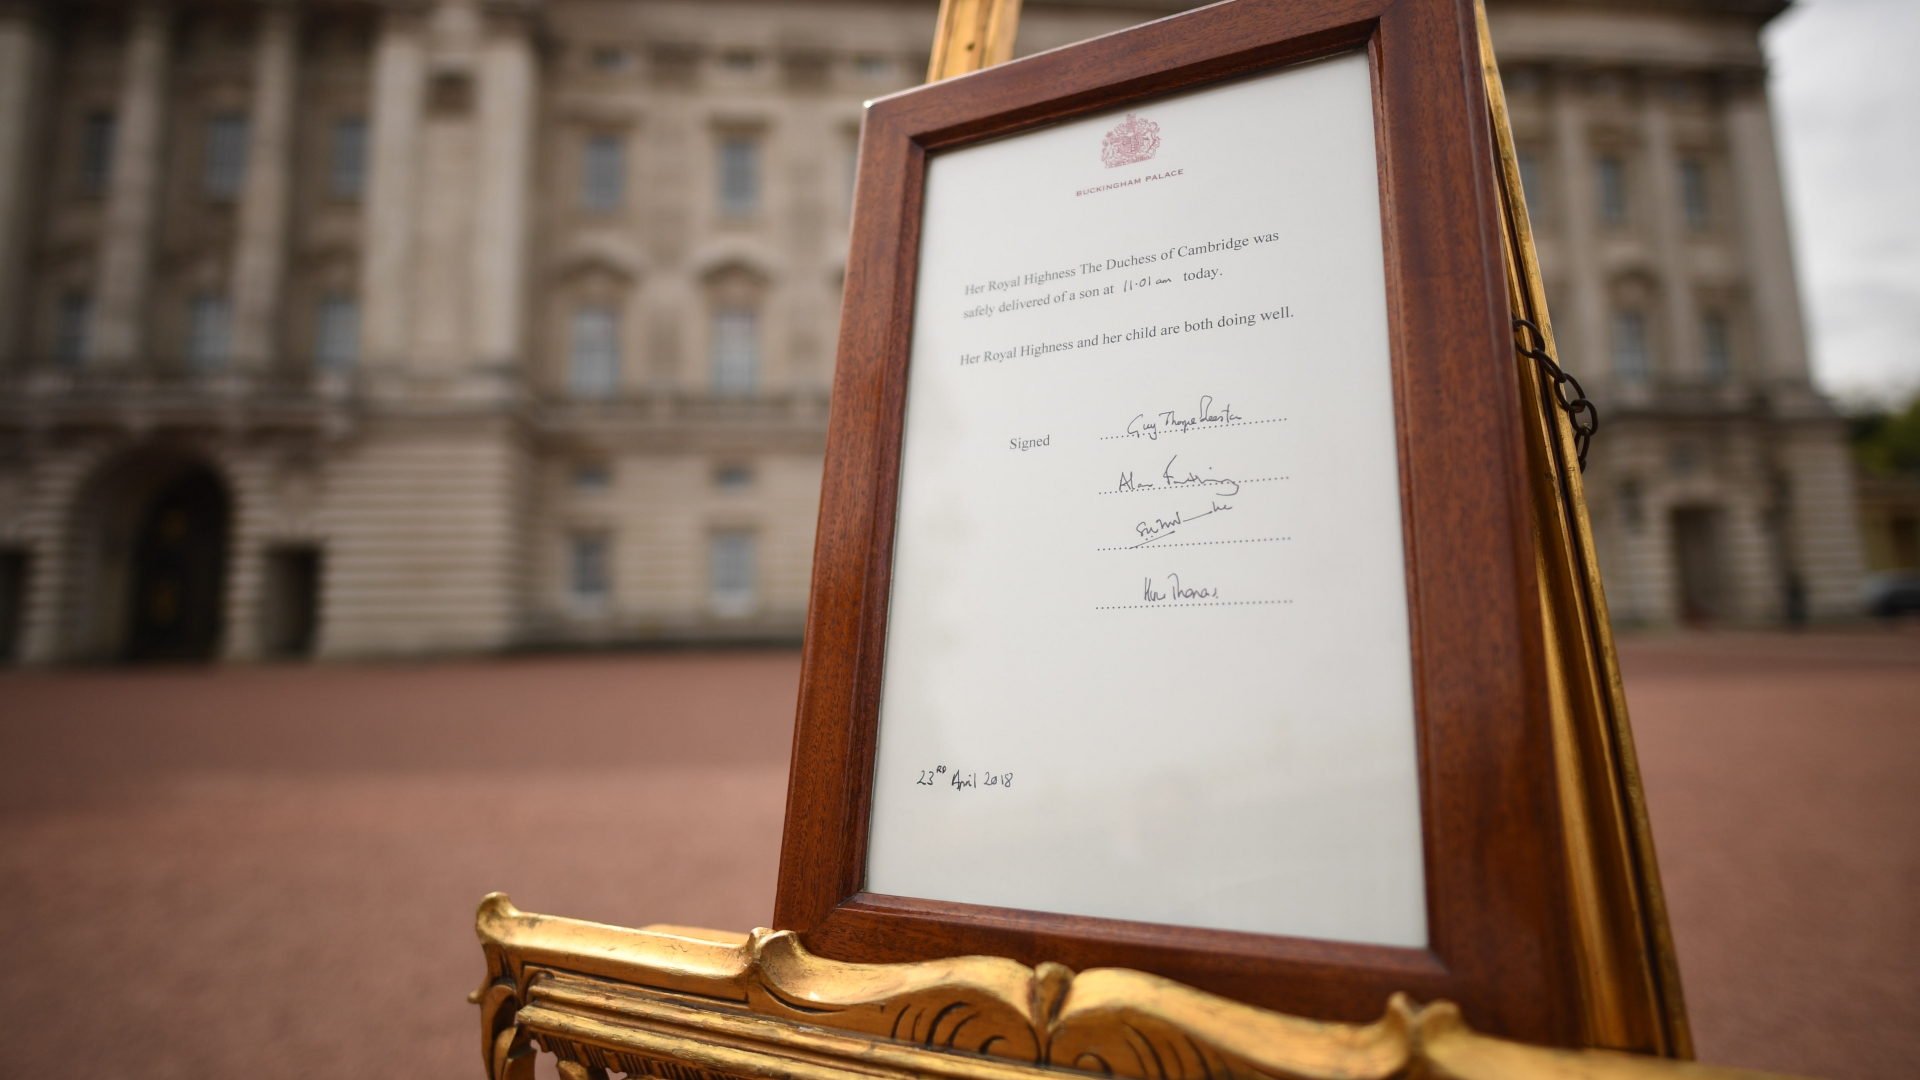 BUCKINGHAM PALACE
Her Royal Highness The Duchess of Cambridge was
safely delivered of a son at 11·01 am today.
Her Royal Highness and her child are both doing well.
Signed Guy Thorpe-Beeston
Alan Farthing
Huw Thomas
23RD April 2018